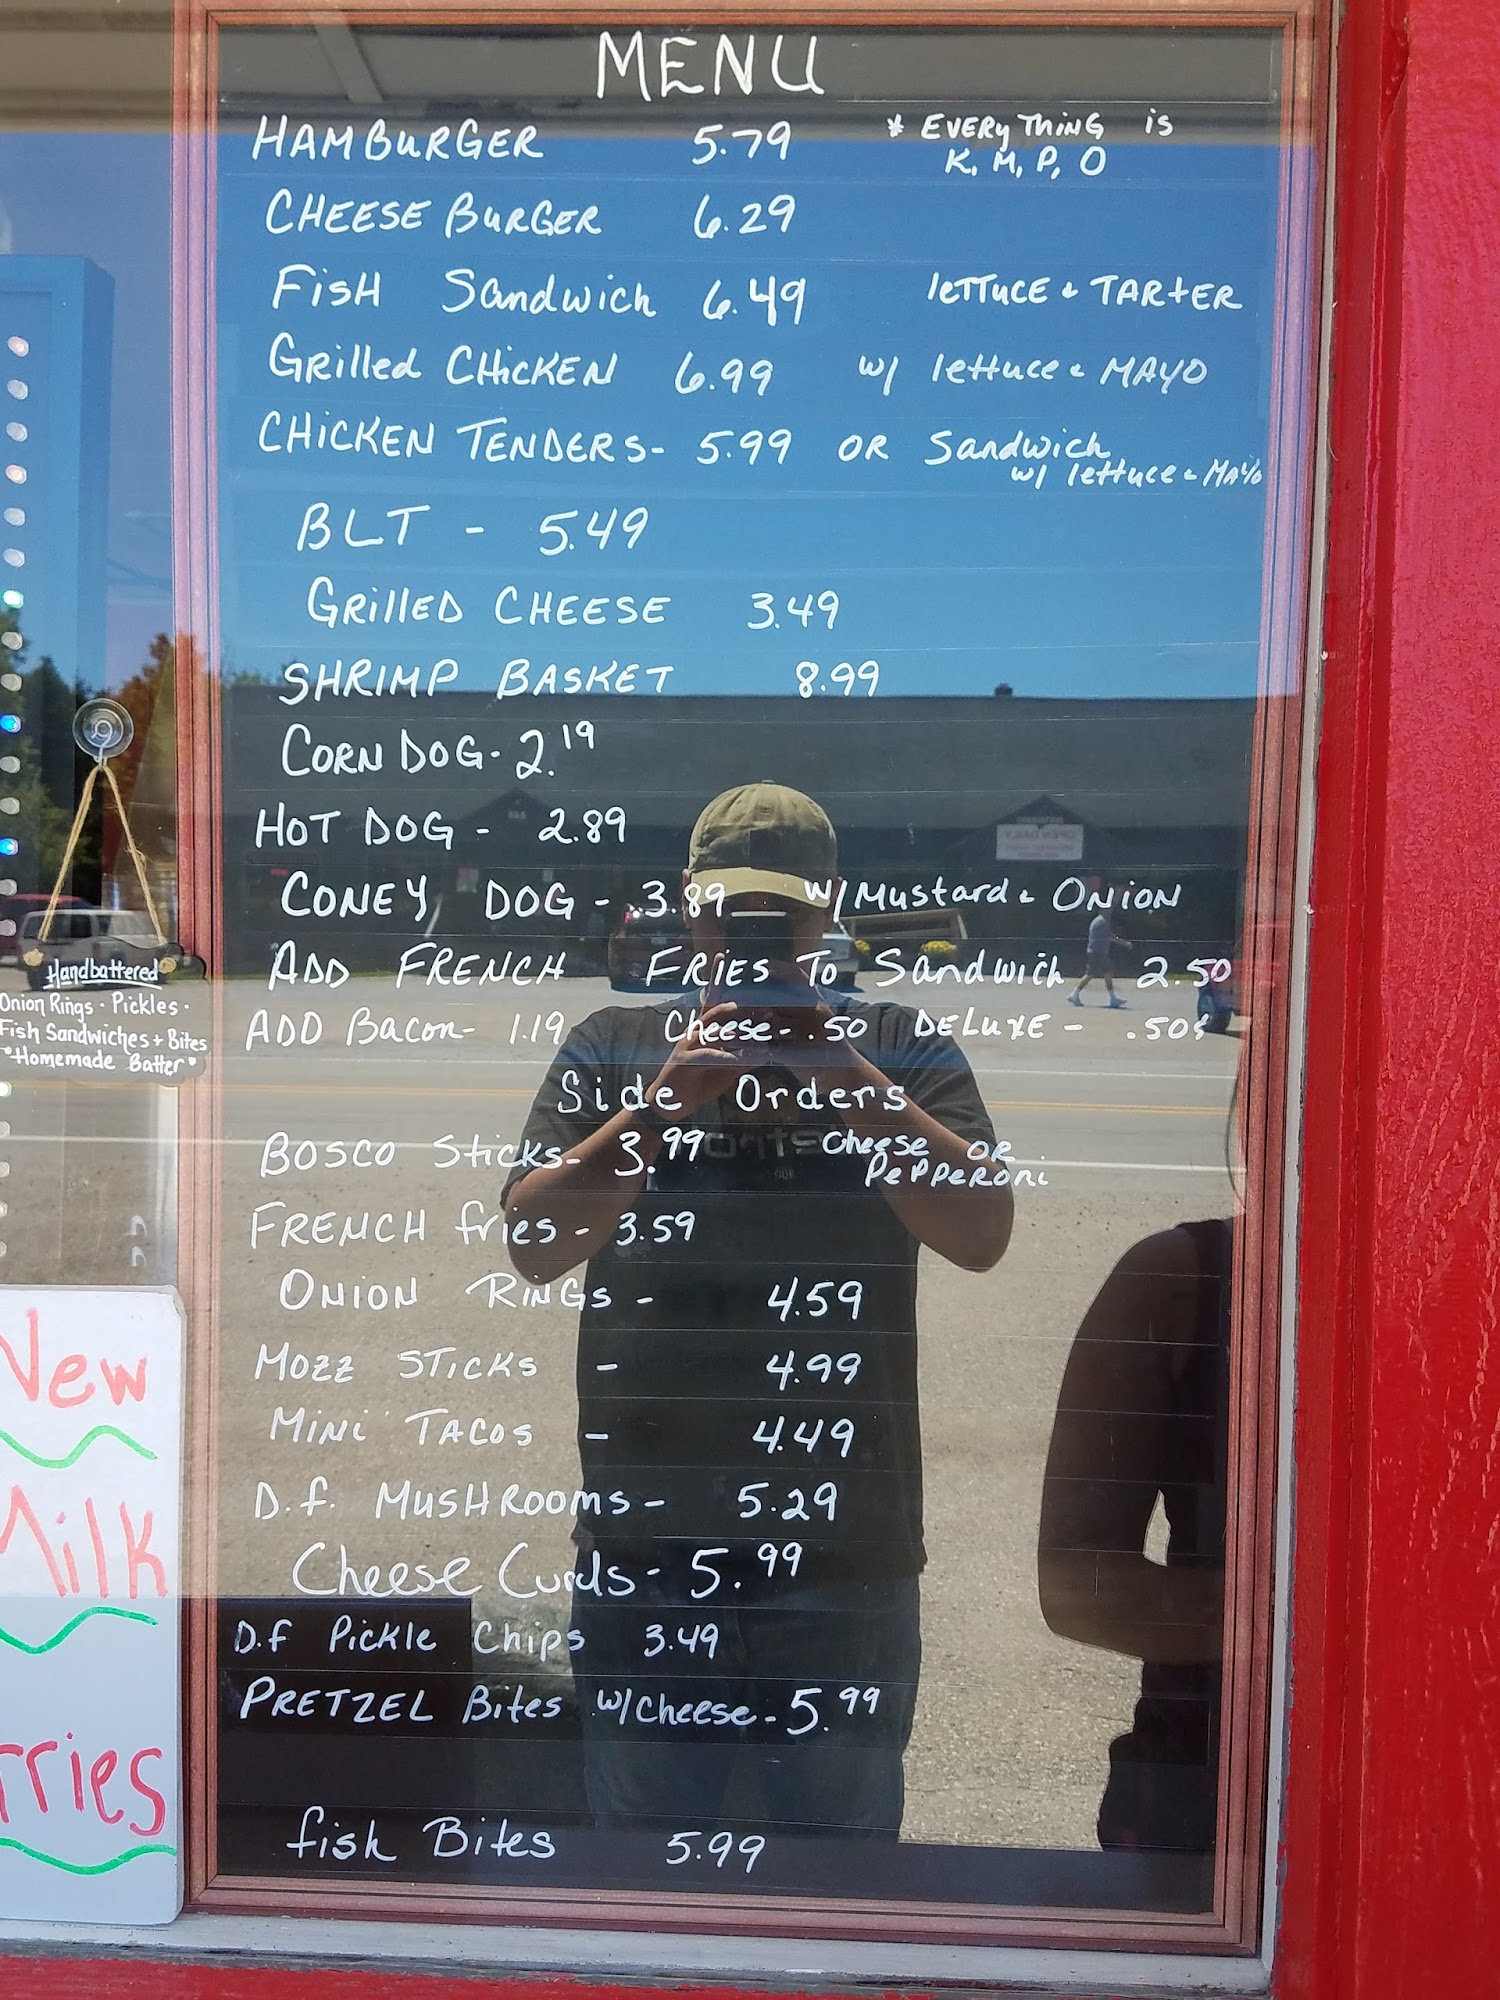 MENU
HAMBURGER 5.79 * EVERYTHiNG is
K, M, P, O
CHEESEBURGER 6.29
FisH Sandwich 6.49 leTTuCE & TARtER
GRilled CHiCKEN 6.99 w/ lettuce & MAYO
CHiCKEN TENDERS- 5.99 OR Sandwich
w/ lettuce & MAYO
BLT - 5.49
GRillED CHEESE 3.49
SHRIMP BASKET 8.99
CORN DOG- 2.19
HOT DOG - 2.89
CONEY DOG - 3.89 w/ Mustard & ONiON
ADD FRENCH FRiES To Sandwich 2.50
ADD Bacon- 1.19 Cheese- .50 DELuXE - .50¢
Side Orders
BOSCO Sticks- 3.99 Cheese OR
PePPeRoni
FRENCH fries - 3.59
ONiON RiNGS - 4.59
MOZZ STiCKS - 4.99
MiNi TACOS - 4.49
D.f. MusHRooms - 5.29
Cheese Curds- 5.99
D.f Pickle Chips 3.49
PRETZEL Bites w/cheese- 5.99
fish Bites 5.99
Handbattered
Onion Rings · Pickles ·
Fish Sandwiches + Bites
"Homemade Batter"
New
Milk
OPEN DAILY